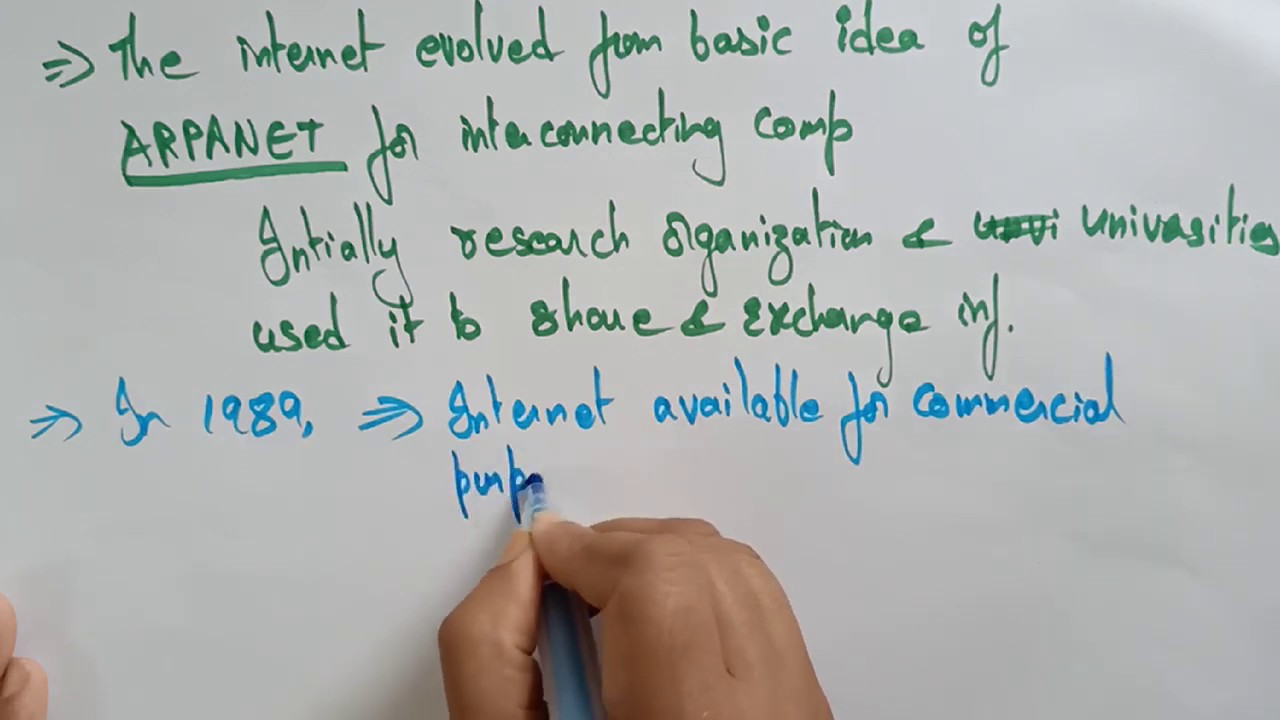 ⇒ The internet evolved from basic idea of
ARPANET for interconnecting comp
Intially research organization & univasities
used it to share & exchange inf.
⇒ In 1989, ⇒ Internet available for commercial
purp